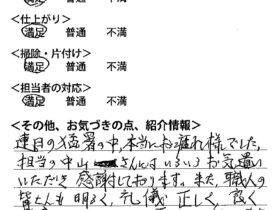 満足 普通 不満
<仕上がり>
満足 普通 不満
<掃除・片付け>
満足 普通 不満
<担当者の対応>
満足 普通 不満
<その他、お気づきの点、紹介情報>
連日の猛暑の中、本当にお疲れ様でした。
担当の中山さんにはいろいろお気遣い
いただき感謝しております。また、職人の
皆さんも明るく、礼儀正しく、良く